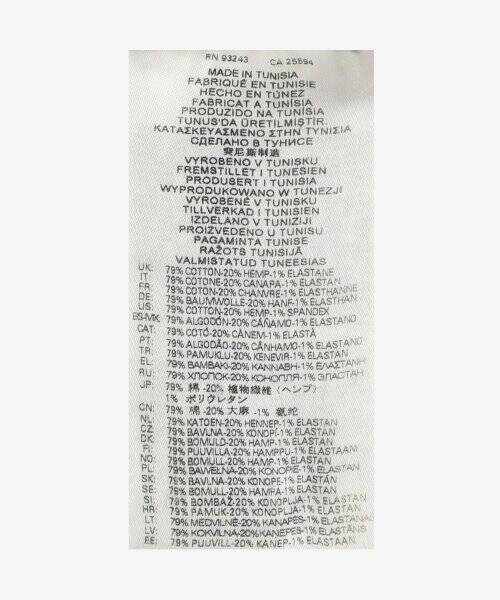 RN 93243 CA 25594
MADE IN TUNISIA
FABRIQUÉ EN TUNISIE
HECHO EN TÚNEZ
FABRICAT A TUNÍSIA
PRODUZIDO NA TUNÍSIA
TUNUS'DA ÜRETILMIŞTIR.
ΚΑΤΑΣΚΕΥΑΣΜΕΝΟ ΣΤΗΝ ΤΥΝΙΣΙΑ
СДЕЛАНО В ТУНИСЕ
突尼斯制造
VYROBENO V TUNISKU
FREMSTILLET I TUNESIEN
PRODUSERT I TUNISIA
WYPRODUKOWANO W TUNEZJI
VYROBENÉ V TUNISKU
TILLVERKAD I TUNISIEN
IZDELANO V TUNIZIJI
PROIZVEDENO U TUNISU
PAGAMINTA TUNISE
RAŽOTS TUNISIJĀ
VALMISTATUD TUNEESIAS
UK: 79% COTTON-20% HEMP-1% ELASTANE
IT: 79% COTONE-20% CANAPA-1% ELASTAN
FR: 79% COTON-20% CHANVRE-1% ELASTHANNE
DE: 79% BAUMWOLLE-20% HANF-1% ELASTHAN
US: 79% COTTON-20% HEMP-1% SPANDEX
ES-MX: 79% ALGODÓN-20% CÁÑAMO-1% ELASTANO
CAT: 79% COTÓ-20% CÀNEM-1% ELASTÀ
PT: 79% ALGODÃO-20% CÂNHAMO-1% ELASTANO
TR: 79% PAMUKLU-20% KENEVIR-1% ELASTAN
EL: 79% ΒΑΜΒΑΚΙ-20% ΚΑΝΝΑΒΗ-1% ΕΛΑΣΤΑΝΗ
RU: 79% ХЛОПОК-20% КОНОПЛЯ-1% ЭЛАСТАН
JP: 79% 綿 -20% 植物繊維 (ヘンプ)
1% ポリウレタン
CN: 79% 棉 -20% 大麻 -1% 氨纶
NL: 79% KATOEN-20% HENNEP-1% ELASTAN
CZ: 79% BAVLNA-20% KONOPÍ-1% ELASTAN
DK: 79% BOMULD-20% HAMP-1% ELASTAN
FI: 79% PUUVILLA-20% HAMPPU-1% ELASTAANI
NO: 79% BOMULL-20% HAMP-1% ELASTAN
PL: 79% BAWEŁNA-20% KONOPIE-1% ELASTAN
SK: 79% BAVLNA-20% KONOPE-1% ELASTÁN
SE: 79% BOMULL-20% HAMPA-1% ELASTAN
SI: 79% BOMBAŽ-20% KONOPLJA-1% ELASTAN
HR: 79% PAMUK-20% KONOPLJA-1% ELASTAN
LT: 79% MEDVILNĖ-20% KANAPĖS-1% ELASTANAS
LV: 79% KOKVILNA-20% KAŅEPES-1% ELASTĀN
EE: 79% PUUVILL-20% KANEP-1% ELASTAAN